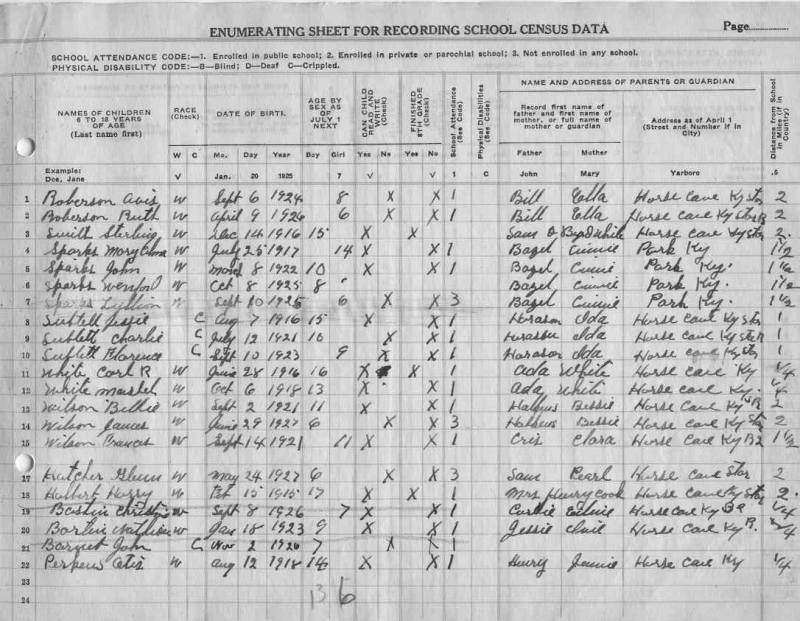 ENUMERATING SHEET FOR RECORDING SCHOOL CENSUS DATA Page
SCHOOL ATTENDANCE CODE:—1. Enrolled in public school; 2. Enrolled in private or parochial school; 3. Not enrolled in any school.
PHYSICAL DISABILITY CODE:—B—Blind; D—Deaf C—Crippled.
NAMES OF CHILDREN 6 TO 18 YEARS OF AGE (Last name first) RACE (Check) DATE OF BIRTH. AGE BY SEX AS OF JULY 1 NEXT CAN CHILD READ AND WRITE (Check) FINISHED 8TH GRADE (Check) School Attendance (See Code) Physical Disabilities (See Code) NAME AND ADDRESS OF PARENTS OR GUARDIAN Distance from School in Miles (if in City)
Record first name of father and first name of mother, or full name of mother or guardian Address as of April 1 (Street and Number if in City)
W C Mo. Day Year Boy Girl Yes No Yes No 1 Father Mother Yarboro
Example: Doe, Jane V Jan. 20 1925 7 V V C John Mary .5
1 Roberson Avis W Sept 6 1924 8 X X 1 Bill Ella Horse Cave Ky Star 2
2 Roberson Ruth W April 9 1926 6 X X 1 Bill Ella Horse Cave Ky Star R 2
3 Smith Sterling W Dec 14 1916 15 X X Sam Horse Cave Ky Star 2.
4 Sparks Mary W July 25 1917 14 X X 1 Bazel Park Ky 1 1/2
5 Sparks John W March 8 1922 10 X X 1 Bazel Park Ky. 1 1/2
6 Sparks W Oct 8 1925 8 Bazel Park Ky. 1 1/2
7 Sparks Lillian W Sept 10 1925 6 X X 3 Bazel Park Ky. 1 1/2
8 Sublett Jessie C Aug 7 1916 15 X X 1 Ida Horse Cave Ky Star 1
9 Sublett Charlie C July 12 1921 10 X X 1 Ida Horse Cave Ky Star 1
10 Sublett Florence C Sept 10 1923 9 X X 1 Ida Horse Cave Ky Star 1
11 White Carl R W June 28 1916 16 X X 1 Ada White Horse Cave Ky 1/4
12 White W Oct 6 1918 13 X X 1 Ada White Horse Cave Ky. 1/4
13 Wilson Billie W Sept 2 1921 11 X X 1 Bessie Horse Cave Ky 2
14 Wilson James W June 29 1927 6 X X 3 Bessie Horse Cave Ky Star 2
15 Wilson Frances W Sept 14 1921 11 X X 1 Cris Clara Horse Cave Ky R2 1 1/2
17 Hutcher Glenn W May 24 1927 6 X X 3 Sam Pearl Horse Cave Star 2
18 Hulbert Harry W 15 1915 17 X X 1 Mrs Henry Cook Horse Cave Ky Star 2.
19 Bastin W Sept 8 1926 7 X X 1 Horse Cave Ky 1/4
20 W Jan 18 1923 9 X X 1 Jessie Horse Cave Ky R.
21 John C Nov 2 1926 7 X X 1
22 Otis W Aug 12 1918 14 X X 1 Henry Horse Cave Ky 1/4
23
24 13 6